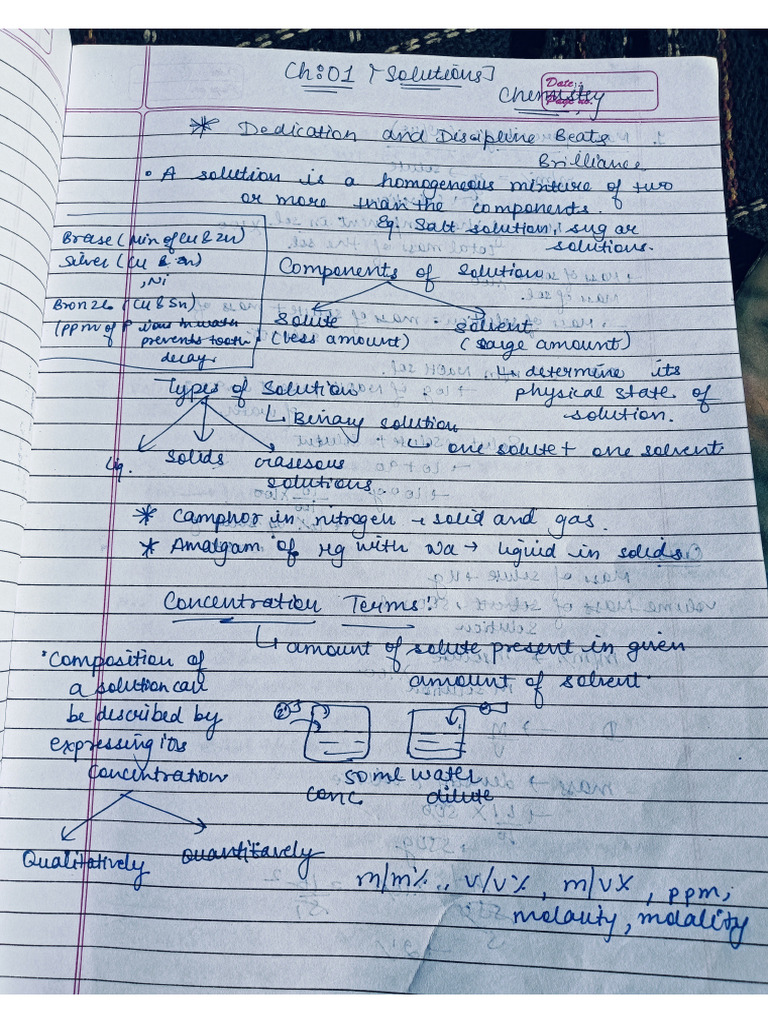 Ch:01 [Solutions]
Date:
Page no.
Chemistry
* Dedication and Discipline Beats
Brilliance
• A solution is a homogeneous mixture of two
or more than the components.
Eg. Salt solution, sugar
solutions.
Brase (min of Cu & Zn)
Silver (Cu & Zn)
, Ni
Bronze (Cu & Sn)
(ppm of F in water
prevents tooth
decay
Components of Solution
Solute
(Less amount)
Solvent
(Large amount)
↳ determine its
physical state of
solution.
Types of Solution
↳ Binary solution
↳ one solute + one solvent.
Liq.
Solids
Gaseous
solutions
* Camphor in nitrogen → solid and gas.
* Amalgam of Hg with Na → liquid in solids
Concentration Terms:
↳ amount of solute present in given
amount of solvent.
• Composition of
a solution can
be described by
expressing its
Concentration
50 ml water
conc
dilute
Qualitatively
quantitavely
m/m%, v/v%, m/v%, ppm,
molarity, molality